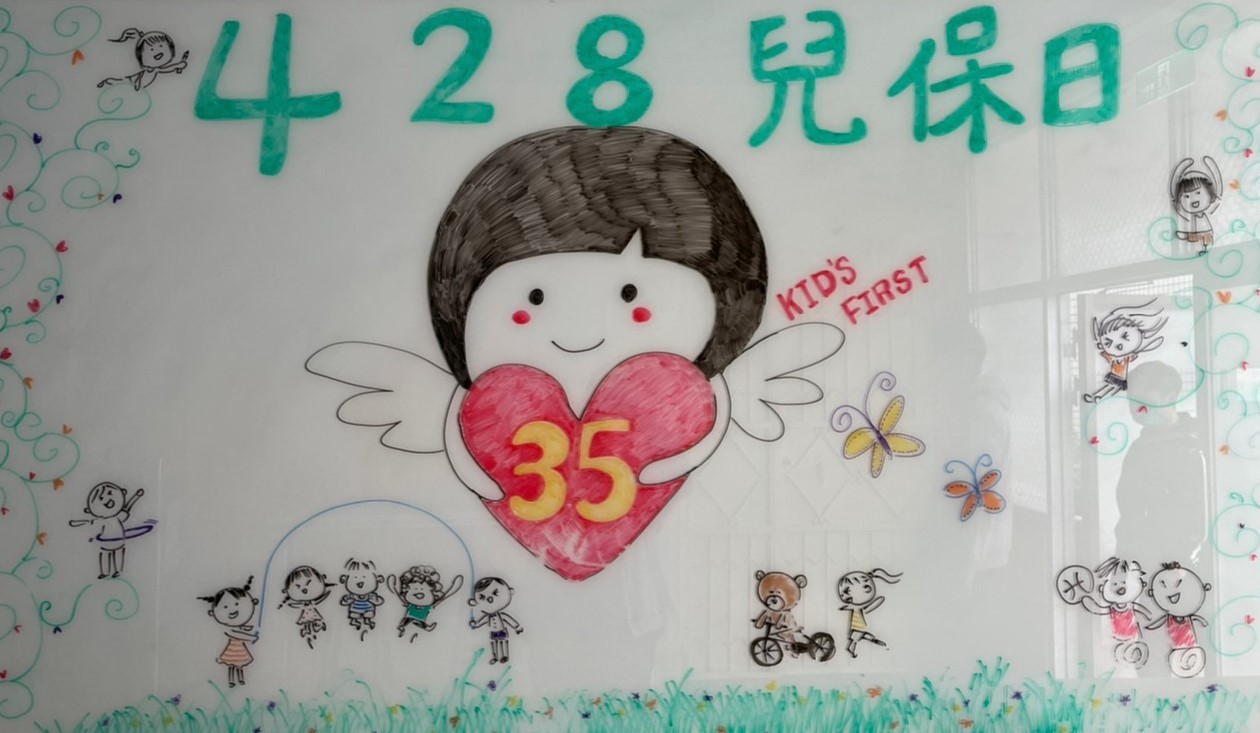 428 兒保日
KID'S
FIRST
35